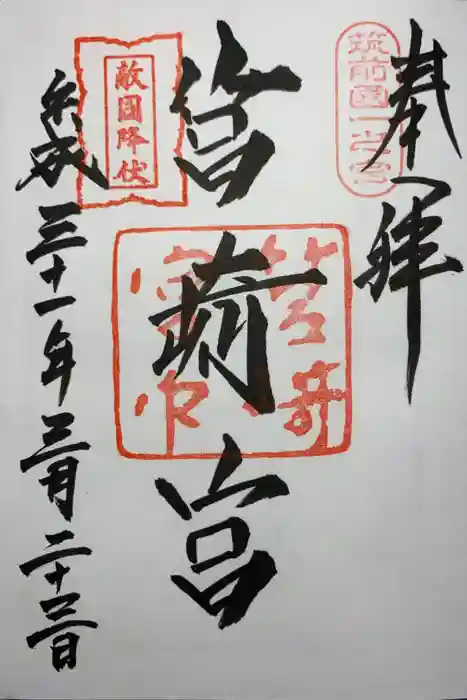 奉拝
筑前國一之宮
筥崎宮
筥崎宮印
敵國降伏
平成三十一年三月二十三日